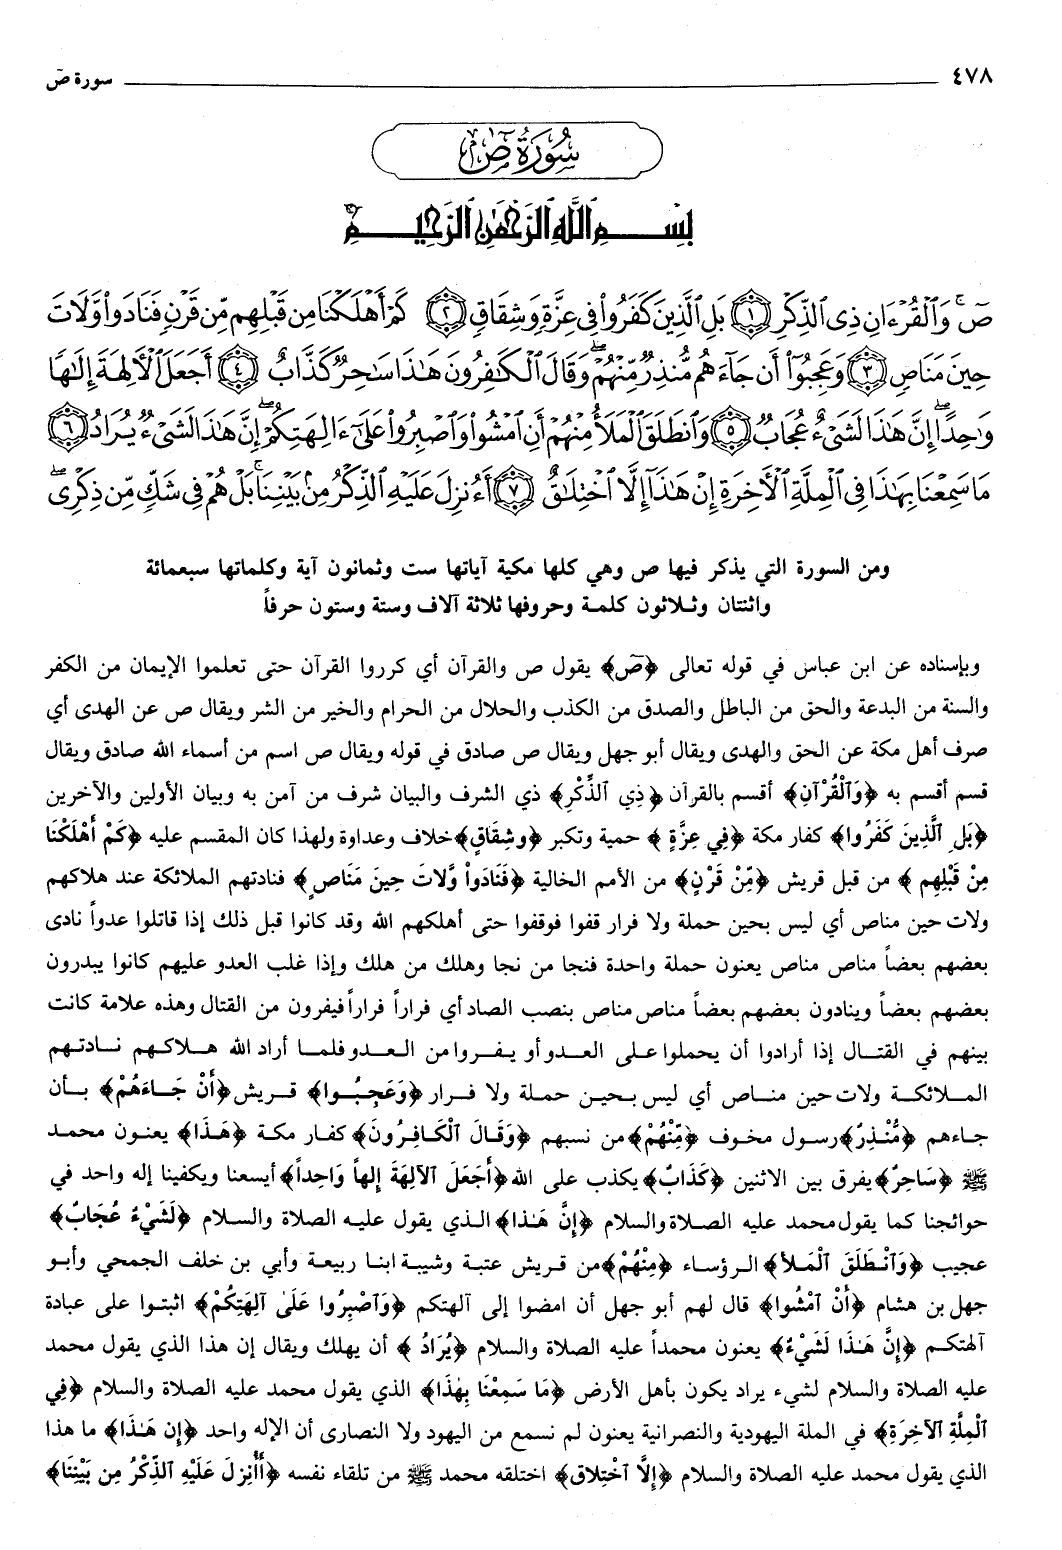 ٤٧٨
سورة صۤ
سُورَةُ صۤ
بِسْمِ ٱللَّهِ ٱلرَّحْمَٰنِ ٱلرَّحِيمِ
صٓۚ وَٱلْقُرْءَانِ ذِى ٱلذِّكْرِ ١ بَلِ ٱلَّذِينَ كَفَرُوا۟ فِى عِزَّةٍ وَشِقَاقٍ ٢ كَمْ أَهْلَكْنَا مِن قَبْلِهِم مِّن قَرْنٍ فَنَادَوا۟ وَّلَاتَ
حِينَ مَنَاصٍ ٣ وَعَجِبُوٓا۟ أَن جَآءَهُم مُّنذِرٌ مِّنْهُمْۖ وَقَالَ ٱلْكَٰفِرُونَ هَٰذَا سَٰحِرٌ كَذَّابٌ ٤ أَجَعَلَ ٱلْأَلِهَةَ إِلَٰهًا
وَٰحِدًاۖ إِنَّ هَٰذَا لَشَىْءٌ عُجَابٌ ٥ وَٱنطَلَقَ ٱلْمَلَأُ مِنْهُمْ أَنِ ٱمْشُوا۟ وَٱصْبِرُوا۟ عَلَىٰٓ ءَالِهَتِكُمْۖ إِنَّ هَٰذَا لَشَىْءٌ يُرَادُ ٦
مَا سَمِعْنَا بِهَٰذَا فِى ٱلْمِلَّةِ ٱلْأَخِرَةِ إِنْ هَٰذَآ إِلَّا ٱخْتِلَٰقٌ ٧ أَءُنزِلَ عَلَيْهِ ٱلذِّكْرُ مِنۢ بَيْنِنَاۚ بَلْ هُمْ فِى شَكٍّ مِّن ذِكْرِىۖ
ومن السورة التي يذكر فيها ص وهي كلها مكية آياتها ست وثمانون آية وكلماتها سبعمائة
واثنتان وثلاثون كلمة وحروفها ثلاثة آلاف وستة وستون حرفاً
وبإسناده عن ابن عباس في قوله تعالى ﴿صۤ﴾ يقول ص والقرآن أي كرروا القرآن حتى تعلموا الإيمان من الكفر
والسنة من البدعة والحق من الباطل والصدق من الكذب والحلال من الحرام والخير من الشر ويقال ص عن الهدى أي
صرف أهل مكة عن الحق والهدى ويقال أبو جهل ويقال ص صادق في قوله ويقال ص اسم من أسماء الله صادق ويقال
قسم أقسم به ﴿وَٱلْقُرْآنِ﴾ أقسم بالقرآن ﴿ذِي ٱلذِّكْرِ﴾ ذي الشرف والبيان شرف من آمن به وبيان الأولين والآخرين
﴿بَلِ ٱلَّذِينَ كَفَرُوا﴾ كفار مكة ﴿فِي عِزَّةٍ﴾ حمية وتكبر ﴿وشِقَاقٍ﴾ خلاف وعداوة ولهذا كان المقسم عليه ﴿كَمْ أَهْلَكْنَا
مِنْ قَبْلِهِم﴾ من قبل قريش ﴿مِّنْ قَرْنٍ﴾ من الأمم الخالية ﴿فَنَادَواْ وَّلَاتَ حِينَ مَنَاصٍ﴾ فنادتهم الملائكة عند هلاكهم
ولات حين مناص أي ليس بحين حملة ولا فرار قفوا فوقفوا حتى أهلكهم الله وقد كانوا قبل ذلك إذا قاتلوا عدواً نادى
بعضهم بعضاً مناص مناص يعنون حملة واحدة فنجا من نجا وهلك من هلك وإذا غلب العدو عليهم كانوا يبدرون
بعضهم بعضاً وينادون بعضهم بعضاً مناص مناص بنصب الصاد أي فراراً فراراً فيفرون من القتال وهذه علامة كانت
بينهم في القتال إذا أرادوا أن يحملوا على العدو أو يفروا من العدو فلما أراد الله هلاكهم نادتهم
الملائكة ولات حين مناص أي ليس بحين حملة ولا فرار ﴿وَعَجِبُوا﴾ قريش ﴿أَنْ جَاءَهُمْ﴾ بأن
جاءهم ﴿مُّنْذِرٌ﴾ رسول مخوف ﴿مِّنْهُمْ﴾ من نسبهم ﴿وَقَالَ ٱلْكَافِرُونَ﴾ كفار مكة ﴿هَٰذَا﴾ يعنون محمد
ﷺ ﴿سَاحِرٌ﴾ يفرق بين الاثنين ﴿كَذَابٌ﴾ يكذب على الله ﴿أَجَعَلَ ٱلآلِهَةَ إِلهاً وَاحِداً﴾ أيسعنا ويكفينا إله واحد في
حوائجنا كما يقول محمد عليه الصلاة والسلام ﴿إِنَّ هَٰذا﴾ الذي يقول عليه الصلاة والسلام ﴿لَشَيْءٌ عُجَابٌ﴾
عجيب ﴿وَٱنْطَلَقَ ٱلْمَلأُ﴾ الرؤساء ﴿مِنْهُمْ﴾ من قريش عتبة وشيبة ابنا ربيعة وأبي بن خلف الجمحي وأبو
جهل بن هشام ﴿أَنْ ٱمْشُوا﴾ قال لهم أبو جهل أن امضوا إلى آلهتكم ﴿وَٱصْبِرُوا عَلَىٰ آلِهَتِكُمْ﴾ اثبتوا على عبادة
آلهتكم ﴿إِنَّ هَٰذَا لَشَيْءٌ﴾ يعنون محمداً عليه الصلاة والسلام ﴿يُرَادُ﴾ أن يهلك ويقال إن هذا الذي يقول محمد
عليه الصلاة والسلام لشيء يراد يكون بأهل الأرض ﴿مَا سَمِعْنَا بِهٰذَا﴾ الذي يقول محمد عليه الصلاة والسلام ﴿فِي
ٱلْمِلَّةِ ٱلآخِرَةِ﴾ في الملة اليهودية والنصرانية يعنون لم نسمع من اليهود ولا النصارى أن الإله واحد ﴿إِن هَٰذَا﴾ ما هذا
الذي يقول محمد عليه الصلاة والسلام ﴿إِلَّا ٱخْتِلاق﴾ اختلقه محمد ﷺ من تلقاء نفسه ﴿أَأُنزِلَ عَلَيْهِ ٱلذِّكْرُ مِن بَيْنِنَا﴾